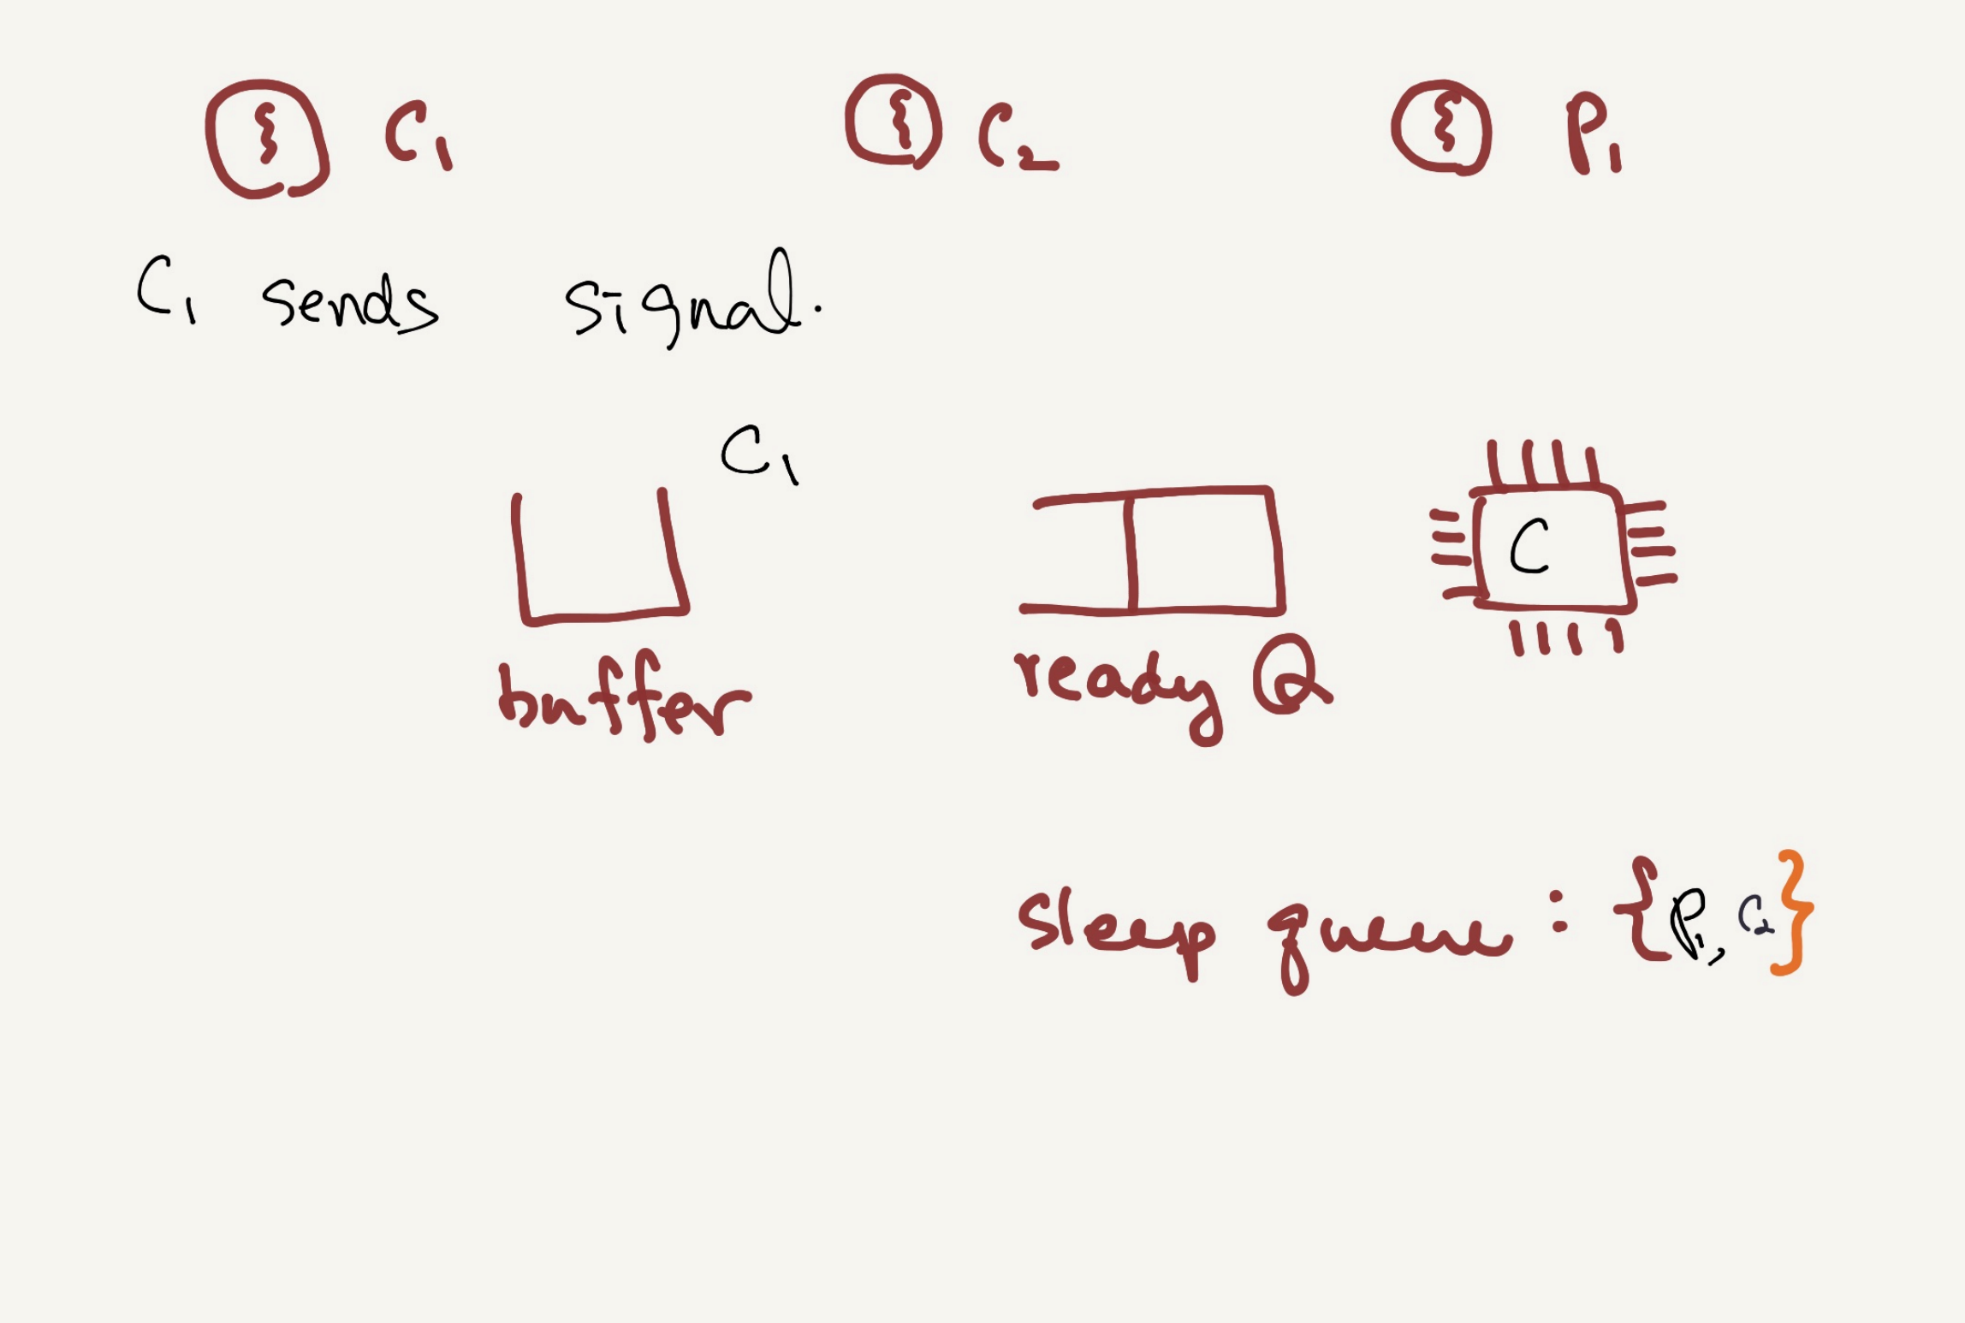 C1 C2 P1
C1 sends signal.
C1
C
buffer
ready Q
sleep queue : {P1, C2}